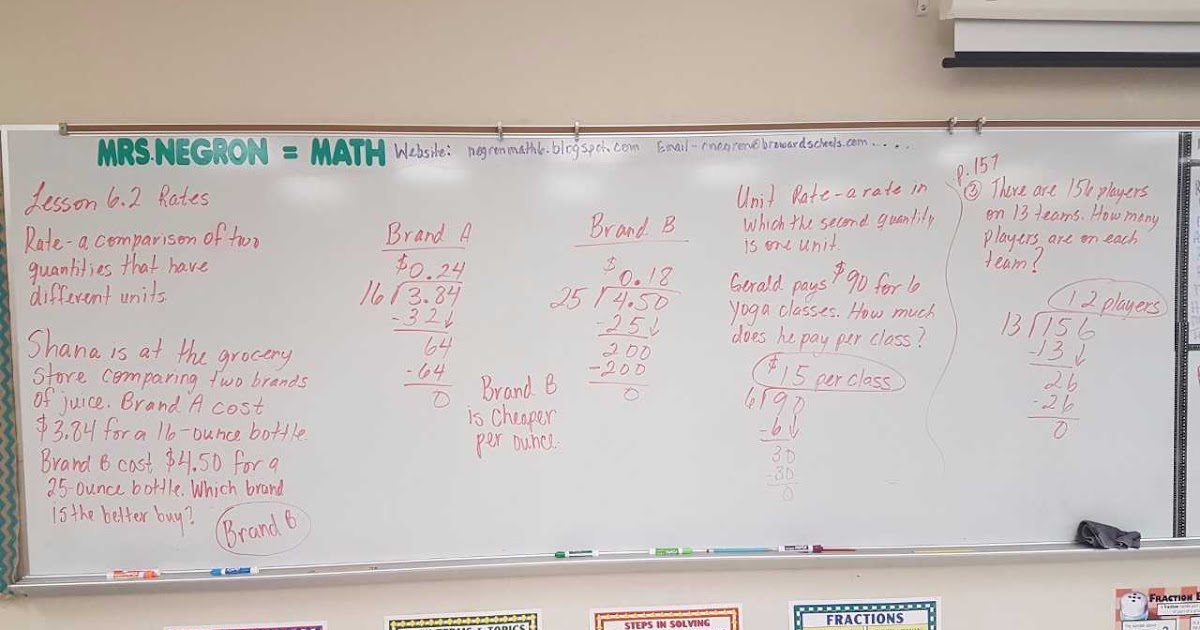 MRS.NEGRON = MATH
Website: negronmath6.blogspot.com Email-
Lesson 6.2 Rates
Rate - a comparison of two
quantities that have
different units
Shana is at the grocery
store comparing two brands
of juice. Brand A cost
$3.84 for a 16-ounce bottle.
Brand B cost $4.50 for a
25-ounce bottle. Which brand
is the better buy?
Brand B
Brand A
$0.24
16 3.84
-32
64
-64
0
Brand B
$0.18
25 4.50
-25
200
-200
0
Brand B
is Cheaper
per ounce.
Unit Rate - a rate in
which the second quantity
is one unit.
Gerald pays $90 for 6
yoga classes. How much
does he pay per class?
$15 per class
6 90
-6
30
-30
0
p.157
③ There are 156 players
on 13 teams. How many
players are on each
team?
12 players
13 156
-13
26
-26
0
STEPS IN SOLVING
FRACTIONS
FRACTION